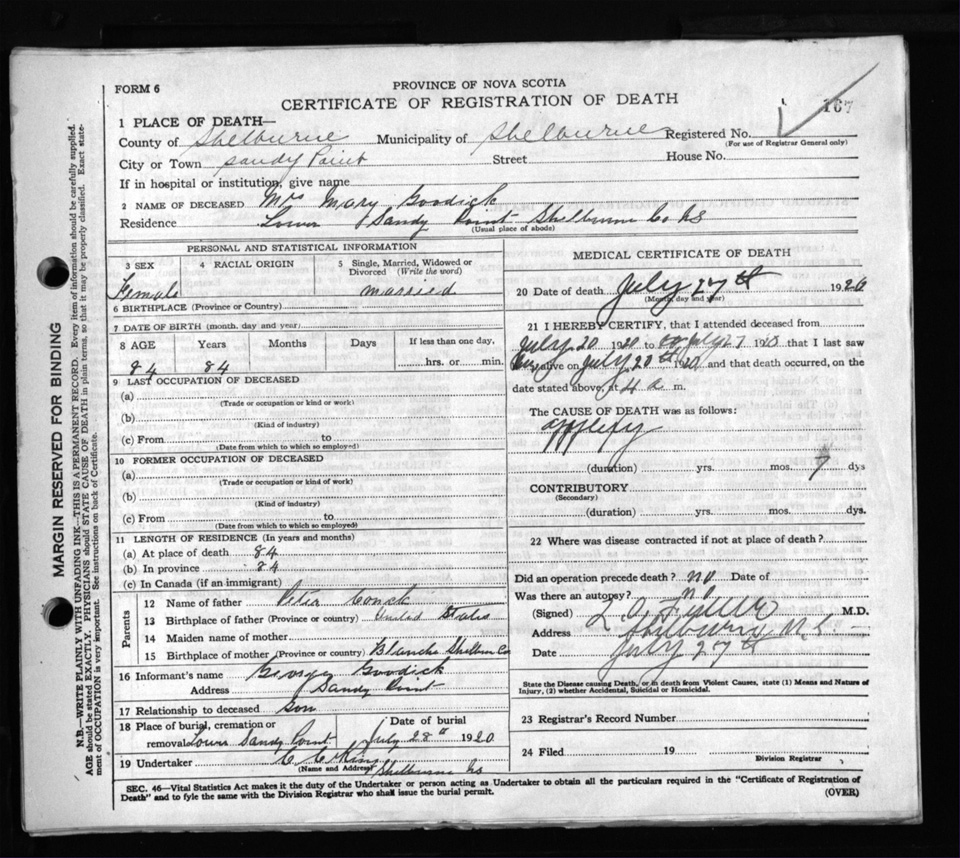 FORM 6
PROVINCE OF NOVA SCOTIA
CERTIFICATE OF REGISTRATION OF DEATH
167
1 PLACE OF DEATH—
County of Shelburne Municipality of Shelburne Registered No.
(For use of Registrar General only)
City or Town Sandy Point Street House No.
If in hospital or institution, give name
2 NAME OF DECEASED Mrs Mary Goodick
Residence Lower Sandy Point Shelburne Co NS
(Usual place of abode)
PERSONAL AND STATISTICAL INFORMATION
3 SEX 4 RACIAL ORIGIN 5 Single, Married, Widowed or Divorced (Write the word)
Female married
6 BIRTHPLACE (Province or Country)
7 DATE OF BIRTH (month, day and year)
8 AGE Years Months Days If less than one day,
84 84 hrs. or min.
9 LAST OCCUPATION OF DECEASED
(a)
(Trade or occupation or kind or work)
(b)
(Kind of industry)
(c) From to
(Date from which to which so employed)
10 FORMER OCCUPATION OF DECEASED
(a)
(Trade or occupation or kind of work)
(b)
(Kind of industry)
(c) From to
(Date from which to which so employed)
11 LENGTH OF RESIDENCE (In years and months)
(a) At place of death 84
(b) In province 84
(c) In Canada (if an immigrant)
Parents
12 Name of father Peter
13 Birthplace of father (Province or country) United States
14 Maiden name of mother
15 Birthplace of mother (Province or country) Blanche Shelburn Co
16 Informant's name George Goodick
Address Sandy Point
17 Relationship to deceased Son
18 Place of burial, cremation or Date of burial
removal Lower Sandy Point July 28th 1920
19 Undertaker King
(Name and Address) Shelburne NS
MEDICAL CERTIFICATE OF DEATH
20 Date of death July 27th 192
(Month, day and year)
21 I HEREBY CERTIFY, that I attended deceased from
July 20 1920 to July 27 19 that I last saw
alive on July 20th 1920 and that death occurred, on the
date stated above, at 4 a m.
The CAUSE OF DEATH was as follows:
(duration) yrs. mos. 7 dys
CONTRIBUTORY
(Secondary)
(duration) yrs. mos. dys.
22 Where was disease contracted if not at place of death?
Did an operation precede death? no Date of
Was there an autopsy? no
(Signed) M.D.
Address Shelburne N.S.
Date July 27th
State the Disease causing Death, or in death from Violent Causes, state (1) Means and Nature of
Injury, (2) whether Accidental, Suicidal or Homicidal.
23 Registrar's Record Number
24 Filed 19
Division Registrar
SEC. 46—Vital Statistics Act makes it the duty of the Undertaker or person acting as Undertaker to obtain all the particulars required in the "Certificate of Registration of
Death" and to fyle the same with the Division Registrar who shall issue the burial permit.
(OVER)
MARGIN RESERVED FOR BINDING
N.B.—WRITE PLAINLY WITH UNFADING INK—THIS IS A PERMANENT RECORD. Every item of information should be carefully supplied.
AGE should be stated EXACTLY. PHYSICIANS should STATE CAUSE OF DEATH in plain terms, so that it may be properly classified. Exact state-
ment of OCCUPATION is very important. See instructions on back of Certificate.